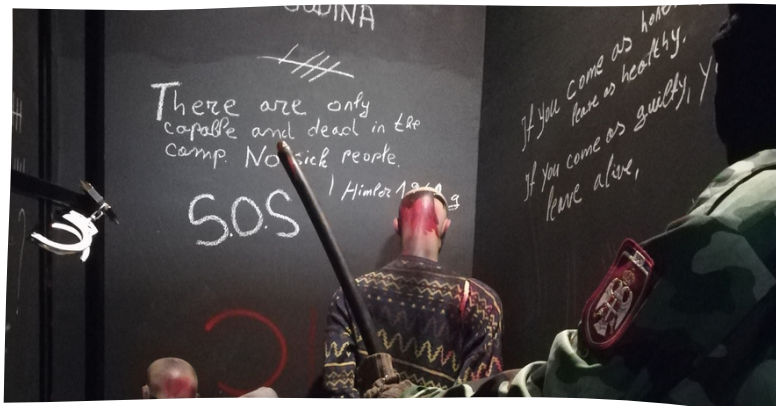 GODINA
There are only
capable and dead in the
camp. No sick people.
Himler
S.O.S
If you come as
leave as healthy.
If you come as guilty,
leave alive,